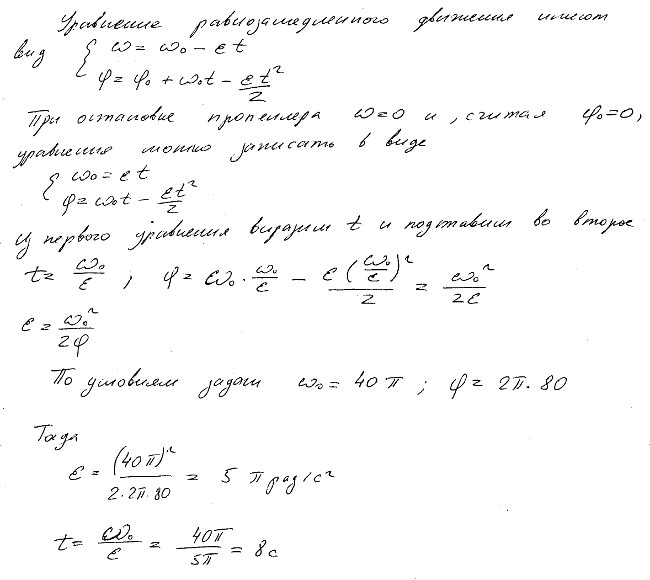 Уравнение равнозамедленного движения имеют
вид { ω = ω₀ − εt
φ = φ₀ + ω₀t − εt²/2
При остановке пропеллера ω=0 и, считая φ₀=0,
уравнения можно записать в виде
{ ω₀ = εt
φ = ω₀t − εt²/2
Из первого уравнения выразим t и подставим во второе
t = ω₀/ε ; φ = ω₀ · ω₀/ε − ε(ω₀/ε)²/2 = ω₀²/2ε
ε = ω₀²/2φ
По условиям задачи ω₀ = 40π ; φ = 2π·80
Тогда
ε = (40π)²/2·2π·80 = 5π рад/с²
t = ω₀/ε = 40π/5π = 8с